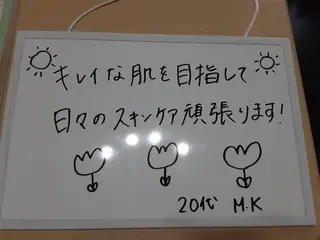 キレイな肌を目指して
日々のスキンケア頑張ります!
20代 M.K